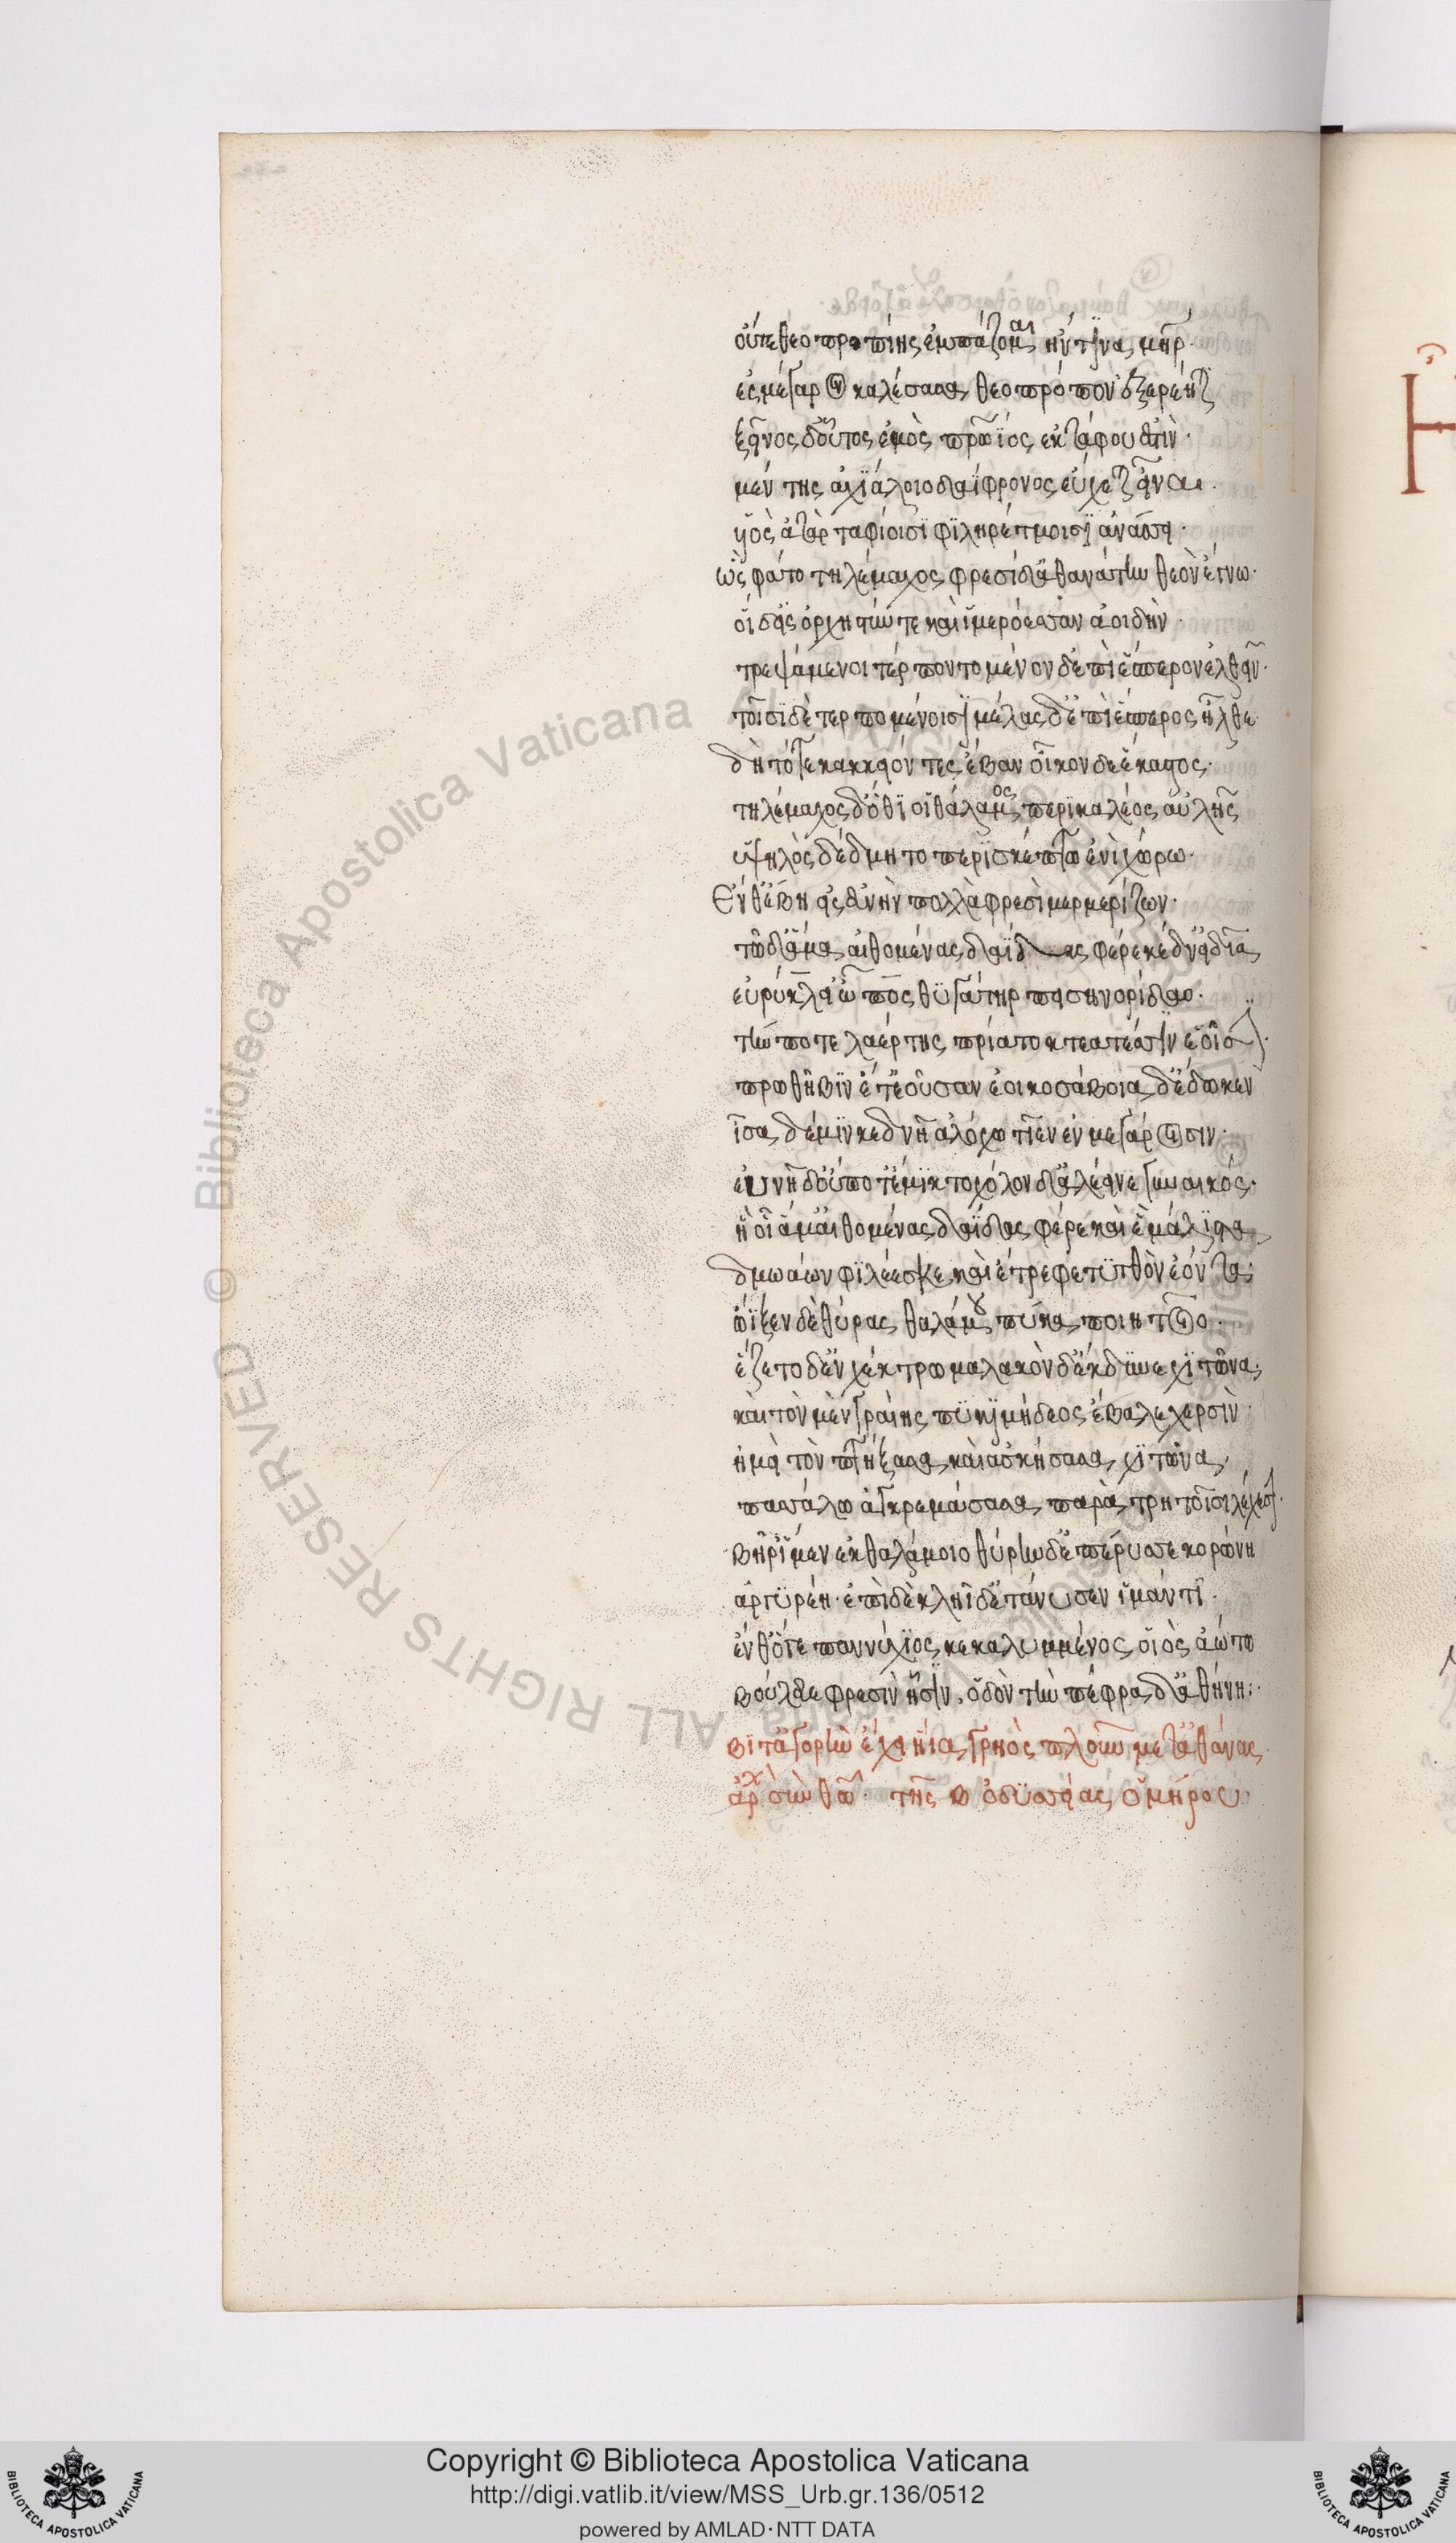 οὔτε θεοπροπίης ἐμπάζομαι ἥντινα μήτηρ·
ἐς μέγαρον καλέσασα θεοπρόπον ἐξερέηται
ξεῖνος δ' οὗτος ἐμὸς πατρώϊος ἐκ τάφου ἐστὶν·
μέντης ἀγχιάλοιο δαΐφρονος εὔχεται εἶναι·
υἱὸς ἀτὰρ ταφίοισι φιληρέτμοισιν ἀνάσσει·
ὣς φάτο τηλέμαχος φρεσὶ δ' ἀθανάτην θεὸν ἔγνω·
οἱ δ' εἰς ὀρχηστύν τε καὶ ἱμερόεσσαν ἀοιδὴν·
τρεψάμενοι τέρποντο μένον δ' ἐπὶ ἕσπερον ἐλθεῖν·
τοῖσι δὲ τερπομένοισι μέλας δ' ἐπὶ ἕσπερος ἦλθε
δὴ τότε κακκείοντες ἔβαν οἶκον δὲ ἕκαστος·
τηλέμαχος δ' ὅθι οἱ θάλαμος περικαλέος αὐλῆς
ὑψηλὸς δέδμητο περισκέπτω ἐνὶ χώρω·
Ἔνθ' ἔβη εἰς εὐνὴν πολλὰ φρεσὶ μερμερίζων·
τῶ δ' ἅμα αἰθομένας δαΐδας φέρε κέδν' εἰδυῖα
εὐρύκλει' ὦπος θυγάτηρ πεισηνορίδαο·
τήν ποτε λαέρτης πρίατο κτεάτεσσιν ἑοῖσιν·
πρωθήβην ἔτ' ἐοῦσαν ἐεικοσάβοια δ' ἔδωκεν
ἶσα δέ μιν κεδνῆ ἀλόχω τίεν ἐν μεγάροισιν·
εὐνῆ δ' οὔποτ' ἔμικτο χόλον δ' ἀλέεινε γυναικός·
ἥ οἱ ἅμ' αἰθομένας δαΐδας φέρε καὶ ἑ μάλιστα
δμωάων φιλέεσκε καὶ ἔτρεφε τυτθὸν ἐόντα·
ὤϊξεν δὲ θύρας θαλάμου πύκα ποιητοῖο·
ἕζετο δ' ἐν λέκτρω μαλακὸν δ' ἔκδυνε χιτῶνα·
καὶ τὸν μὲν γραίης πυκιμήδεος ἔμβαλε χερσὶν·
ἡ μὲν τὸν πτύξασα καὶ ἀσκήσασα χιτῶνα·
πασσάλω ἀγκρεμάσασα παρὰ τρητοῖσι λέχεσσι·
βῆ ῥ' ἴμεν ἐκ θαλάμοιο θύρην δ' ἐπέρυσσε κορώνη
ἀργυρέη· ἐπὶ δὲ κληῖδ' ἐτάνυσεν ἱμάντι·
ἔνθ' ὅ γε παννύχιος κεκαλυμμένος οἰὸς ἀώτω
βούλευε φρεσὶν ᾗσιν ὁδὸν τὴν πέφραδ' ἀθήνη·
τῆς Β ὀδυσσείας ὁμήρου·
Copyright © Biblioteca Apostolica Vaticana
http://digi.vatlib.it/view/MSS_Urb.gr.136/0512
powered by AMLAD·NTT DATA